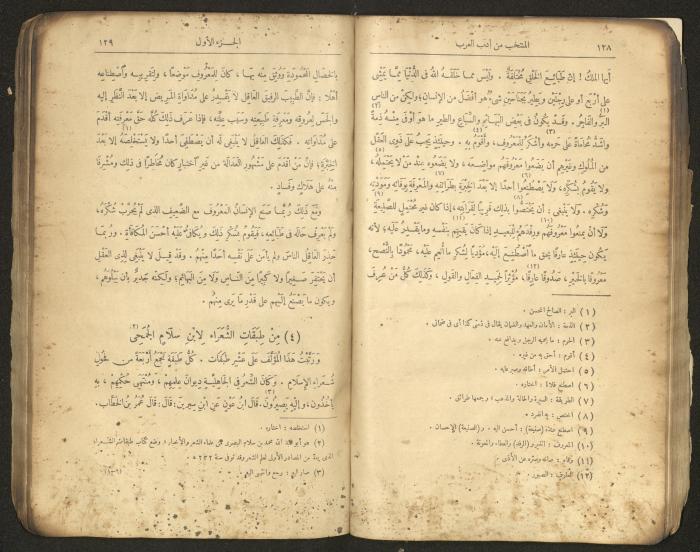 ١٢٨
المنتخب من أدب العرب
أيها الملك ! إن طبائع الخلق مختلفة . وليس مما خلقه الله فى الدنيا مما يمشى
على أربع أو على رجلين ويطير بجناحين شىء هو أفضل من الإنسان، ولكن من الناس
البر والفاجر. وقد يكون فى بعض البهائم والسباع والطير ما هو أوفى منه ذمة
وأشد محاماة على حرمه وأشكر للمعروف ، وأقوم به . وحينئذ يجب على ذوى العقل
من الملوك وغيرهم أن يضعوا معروفهم مواضعه ، ولا يضعوه عند من لا يحتمله،
ولا يقوم بشكره، ولا يصطنعوا أحدا إلا بعد الخبرة بطرائقه والمعرفة بوفائه ومودته
وشكره . ولا ينبغى : أن يختصوا بذلك قريبا لقرابته، إذا كان غير محتمل للصنيعة
ولا أن يمنعوا معروفهم ورفدهم للبعيد إذا كان يقيهم بنفسه وما يقدر عليه، لأنه
يكون حينئذ عارفا بحق ما اصطنع إليه، مؤديا لشكر ما أنعم عليه، محمودا بالنصح،
معروفا بالخير ، صدوقا عارفا، مؤثرا لحميد الفعال والقول ، وكذلك كل من عرف
(١) البر : الصالح المحسن .
(٢) الذمة : الأمان والعهد والضمان يقال فى ذمتى كذا أى فى ضمانى .
(٣) الحرم : ما يحميه الرجل ويدافع عنه .
(٤) أقوم : أحق به من غيره .
(٥) احتمل الأمر : أطاقه وصبر عليه .
(٦) اصطنع فلانا : اختاره .
(٧) الطريقة : السيرة والحالة والمذهب ، وجمعها طرائق .
(٨) اختص : به انفرد .
(٩) اصطنع عنده (صنيعة) : أحسن إليه . و (الصنيعة) الإحسان .
(١٠) المعروف : الخير و(الرفد) والعطاء والمعونة .
(١١) وقاه : صانه وستره عن الأذى .
(١٢) العارف : الصبور .
الجزء الأول
١٢٩
بالخصال المحمودة ووثق منه بها ، كان للمعروف موضعا ، ولتقريبه واصطناعه
أهلا : فإن الطبيب الرفيق العاقل لا يقدر على مداواة المريض إلا بعد النظر إليه
والجس لعروقه ومعرفة طبيعته وسبب علته، فإذا عرف ذلك كله حق معرفته أقدم
على مداواته . فكذلك العاقل لا ينبغى له أن يصطفى أحدا ولا يستخلصه إلا بعد
الخبرة؛ فإن من أقدم على مشهور العدالة من غير اختبار كان مخاطرا فى ذلك ومشرفا
منه على هلاك وفساد .
ومع ذلك ربما صنع الإنسان المعروف مع الضعيف الذى لم يجرب شكره،
ولم يعرف حاله فى طبائعه، فيقوم بشكر ذلك ويكافئ عليه أحسن المكافأة . وربما
حذر العاقل الناس ولم يأمن على نفسه أحدا منهم . وقد قيل لا ينبغى لذى العقل
أن يحتقر صغيرا ولا كبيرا من الناس ولا من البهائم، ولكنه جدير بأن يبلوهم،
ويكون ما يصنع إليهم على قدر ما يرى منهم .
(٤) من طبقات الشعراء لابن سلام الجمحى (٢)
ورتبت هذا المؤلف على عشر طبقات . كل طبقة تجمع أربعة من فحول
شعراء الإسلام . وكان الشعر فى الجاهلية ديوان علمهم ، ومنتهى حكمهم ، به
يأخذون، وإليه يصيرون. قال ابن عون عن ابن سيرين، قال : قال عمر بن الخطاب.
(١) استخلصه : اختاره .
(٢) هو أبو عبد الله محمد بن سلام البصرى من علماء الشعر والأخبار ، وضع كتاب طبقات الشعراء
الذى يعد من المصادر الأولى لعلم الشعر وقد توفى سنة ٢٣٢ ه
(٣) صار إليه : رجع وانتهى إليه .